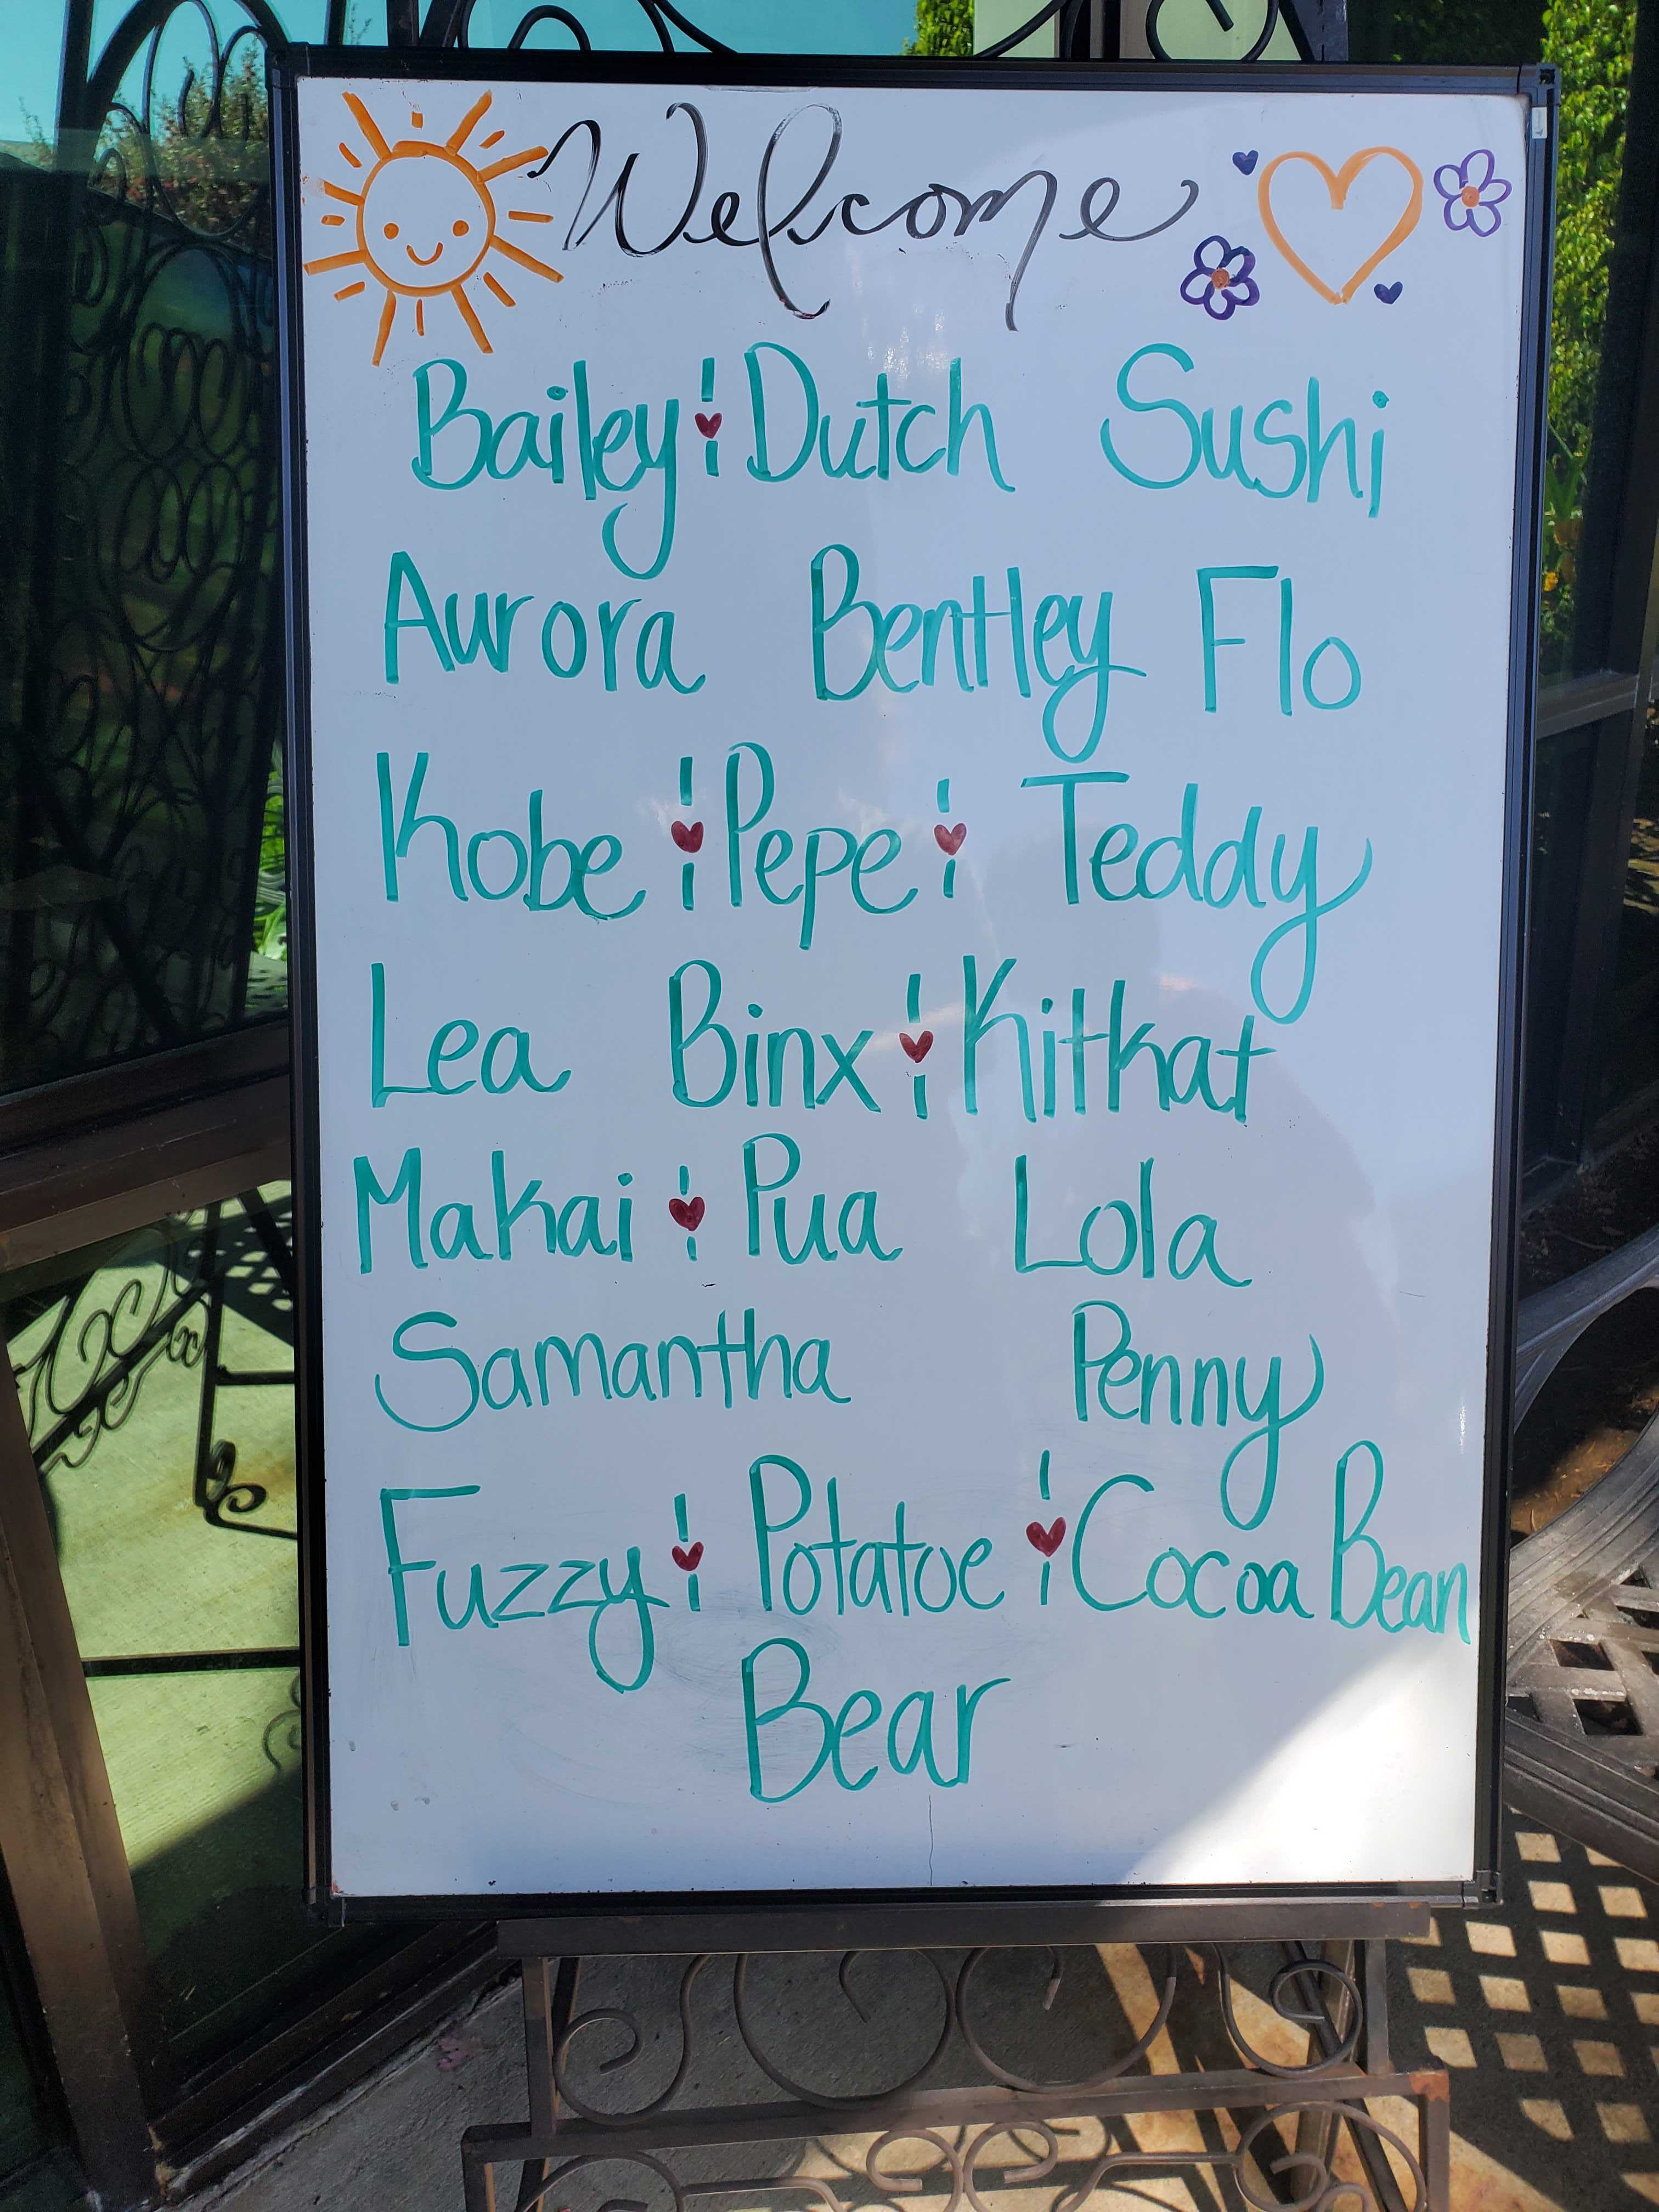 Welcome
Bailey ¦ Dutch Sushi
Aurora Bentley Flo
Kobe ¦ Pepe ¦ Teddy
Lea Binx ¦ Kitkat
Makai ¦ Pua Lola
Samantha Penny
Fuzzy ¦ Potatoe ¦ Cocoa Bean
Bear